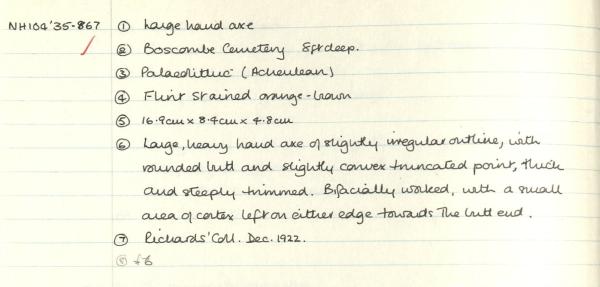 NH104'35-867 ① Large hand axe
② Boscombe Cemetery 8ft deep.
③ Palaeolithic (Acheulean)
④ Flint stained orange-brown
⑤ 16.9cm x 8.4cm x 4.8cm
⑥ Large, heavy hand axe of slightly irregular outline, with
rounded butt and slightly convex truncated point, thick
and steeply trimmed. Bifacially worked, with a small
area of cortex left on either edge towards the butt end.
⑦ Richards' Coll. Dec. 1922.
⑧